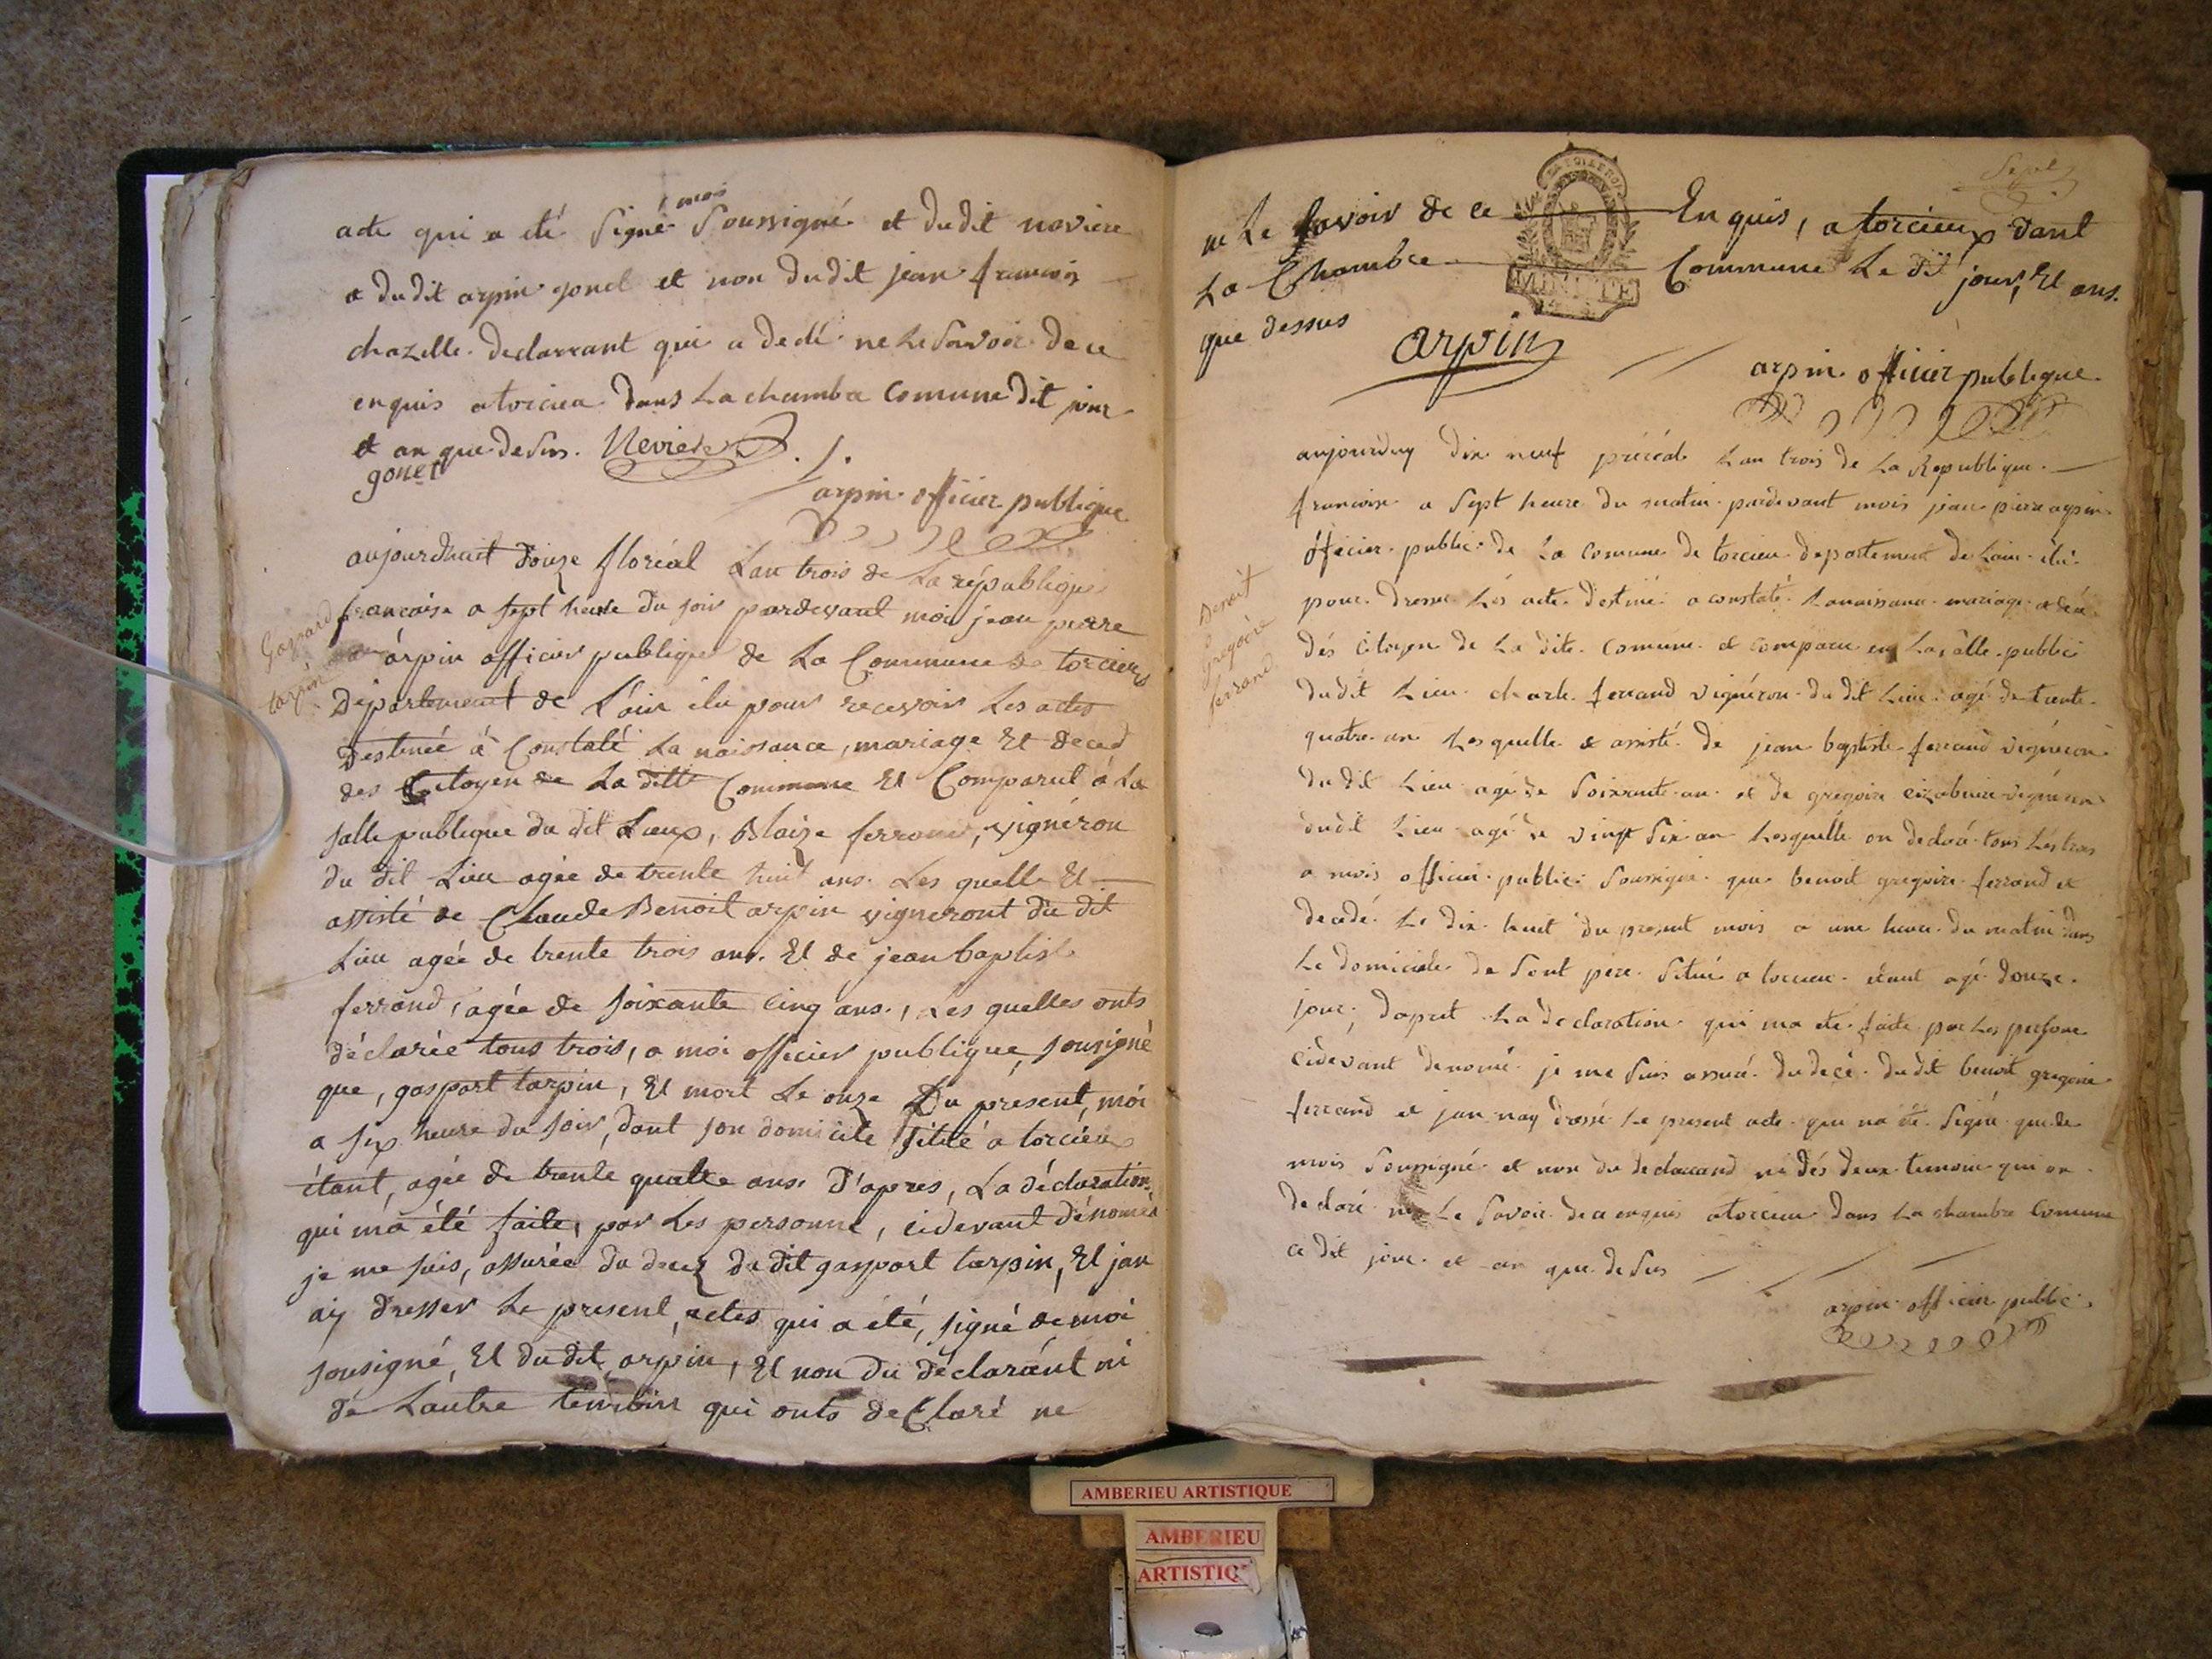 acte qui a eté Signé mois Soussigné et dudit neviere
et dudit arpin gonet et non dudit jean francois
chazelle declarrant qui a dedé ne Le Savoir de ce
enquis a torcieu dans La chambre Comune dit jour
et an que deSus. Neviere
gonet
arpin officier publique
aujourdhuit douze floréal Lan trois de La république
francaise a sept heure du soir pardevant moi jean pierre
arpin officier publique de La Commune de torcieux
Département de L'ain élu pour recevoir Les actes
Destinée à Constaté La naissance, mariage Et deced
des Citoyen de La ditte Commune Et Comparut à La
salle publique du dit Lieux, Blaize ferrond, vignéron
du dit Lieu agée de trente huit ans. Les quelle Et
assisté de Claude Benoit arpin vigneront du dit
Lieu agée de trente trois ans. Et de jean baptist
ferrand, agée de soixante cinq ans, Les quelles onts
déclarée tous trois, a moi officier publique, sousigné
que, gasport tarpin, Et mort Le onze Du present, moi
a six heure du soir, dant son domicile Sitüé a torcieux
étant, agée de trente quatte ans. D'apres, La déclaration,
qui m'a été faite, par Les personne, cidevant dénomés
je me suis, assurée du decez du dit gasport tarpin, Et jan
aÿ dresser Le present, actes qui a été, signé de moi
sousigné, Et du dit, arpin, Et non du déclarant ni
de Lautre temoins qui onts deClaré ne
Gaspard
tarpin
Sept
ne Le savoir de ce Enquis, a torcieux dant
La Chambre Commune Le dit jour, Et ans.
que dessus
MINUTE
arpin
arpin officier publique
aujourduy dix neuf préréal Lan trois de La Republique
francoise a Sept heure du matin pardevant mois jean pierre arpin
officier public de La Comune de torcieu departement de Lain élu
pour dresser Lés acte destiné a constaté La naissance mariage et décé
dés citoyen de La dite Comune et comparu en La sâlle public
dudit Lieu charle ferrand vignéron du dit Lieu agé de trente
quatre an Lesquelle et assisté de jean baptiste ferrand vignéron
du dit Lieu agé de Soixante an et de grégoire vignéron
dudit Lieu agé de vingt Six an Lesquelle on declaré tous Lés trois
a mois officier public Soussigné que benoit gregoire ferrand et
decedé Le dix huit du present mois a une heure du matin dans
Le domicile de Sont pere Situé a torcieu étant agé douze
jour, dapret La declaration qui ma ete faite par Les persone
cidevant denomé je me Suis assuré du decé dudit benoit gregoire
ferrand et jan nay dressé Le present acte qui na été Signé que de
mois Soussigné et non du declarand ni dés deux temoin qui on
declaré ne Le Savoir de ce enquis a torcieu dans La chambre Comune
ce dit jour et an que deSus
arpin officier public
Benoit
Gregoire
ferrand
AMBERIEU ARTISTIQUE
AMBERIEU
ARTISTIQ